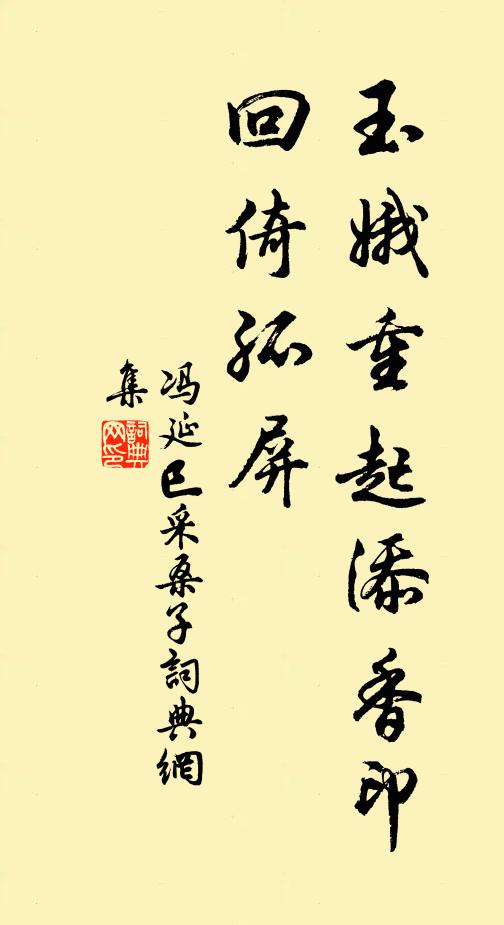 玉娥重起添香印
回倚孤屏
冯延巳采桑子詞典網
集
詞典
网印